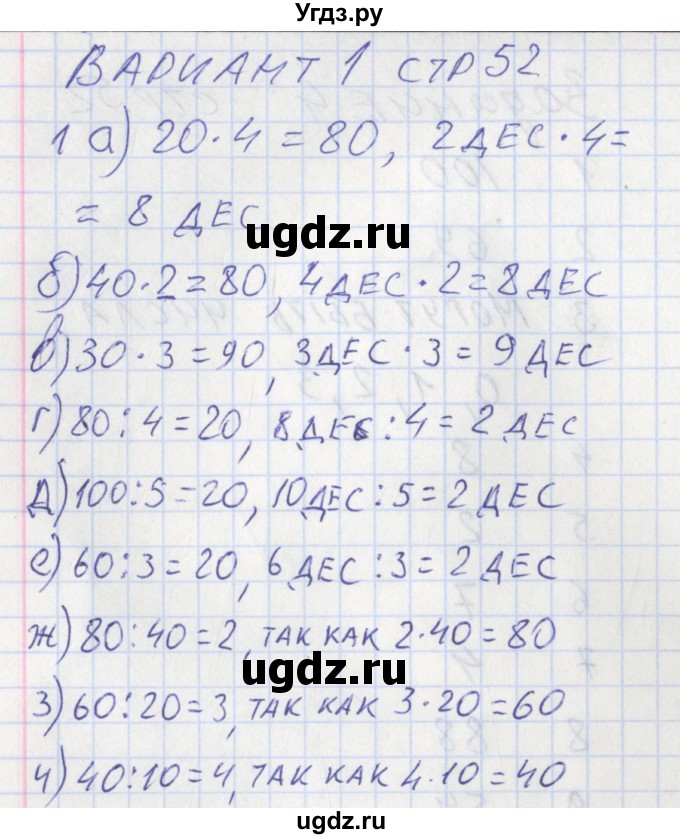 Угдз.ру
ВАРИАНТ 1 СТР 52
1 а) 20·4=80, 2 ДЕС·4=
= 8 ДЕС
ugdz.ru
б) 40·2=80, 4 ДЕС·2=8 ДЕС
в) 30·3=90, 3 ДЕС·3=9 ДЕС
г) 80:4=20, 8 ДЕС:4=2 ДЕС
д) 100:5=20, 10 ДЕС:5=2 ДЕС
е) 60:3=20, 6 ДЕС:3=2 ДЕС
ж) 80:40=2, ТАК КАК 2·40=80
ugdz.ru
з) 60:20=3, ТАК КАК 3·20=60
и) 40:10=4, ТАК КАК 4·10=40
ugdz.ru